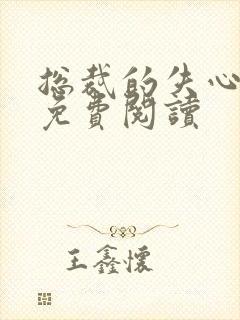 总裁的失心
免費閱讀
王鑫懷